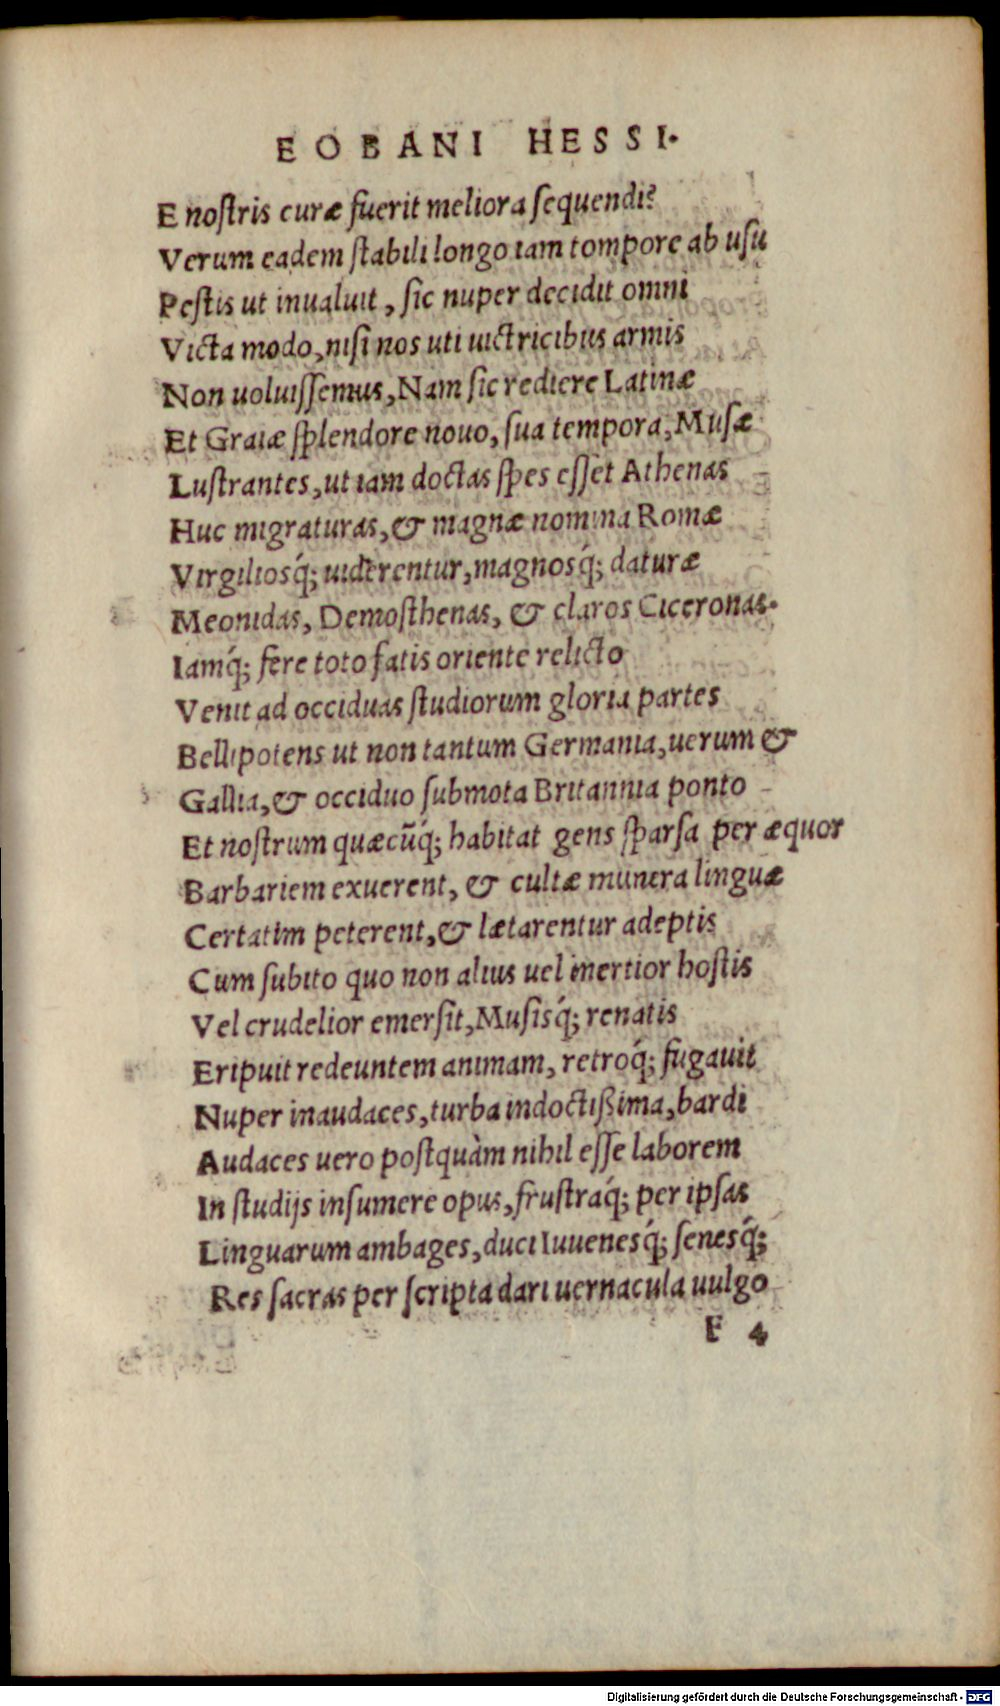 EOBANI HESSI.
E nostris curæ fuerit meliora sequendi?
Verum eadem stabili longo iam tompore ab usu
Pestis ut inualuit, sic nuper decidit omni
Victa modo, nisi nos uti uictricibus armis
Non uoluissemus, Nam sic rediere Latinæ
Et Graiæ splendore nouo, sua tempora, Musæ
Lustrantes, ut iam doctas spes esset Athenas
Huc migraturas, & magnæ nomina Romæ
Virgiliosq́; uiderentur, magnosq́; daturæ
Meonidas, Demosthenas, & claros Ciceronas.
Iamq́; fere toto fatis oriente relicto
Venit ad occiduas studiorum gloria partes
Bellipotens ut non tantum Germania, uerum &
Gallia, & occiduo submota Britannia ponto
Et nostrum quæcūq́; habitat gens sparsa per æquor
Barbariem exuerent, & cultæ munera linguæ
Certatim peterent, & lætarentur adeptis
Cum subito quo non alius uel inertior hostis
Vel crudelior emersit, Musisq́; renatis
Eripuit redeuntem animam, retroq́; fugauit
Nuper inaudaces, turba indoctißima, bardi
Audaces uero postquàm nihil esse laborem
In studijs insumere opus, frustraq́; per ipsas
Linguarum ambages, duci Iuuenesq́; senesq́;
Res sacras per scripta dari uernacula uulgo
F 4
Digitalisierung gefördert durch die Deutsche Forschungsgemeinschaft - DFG